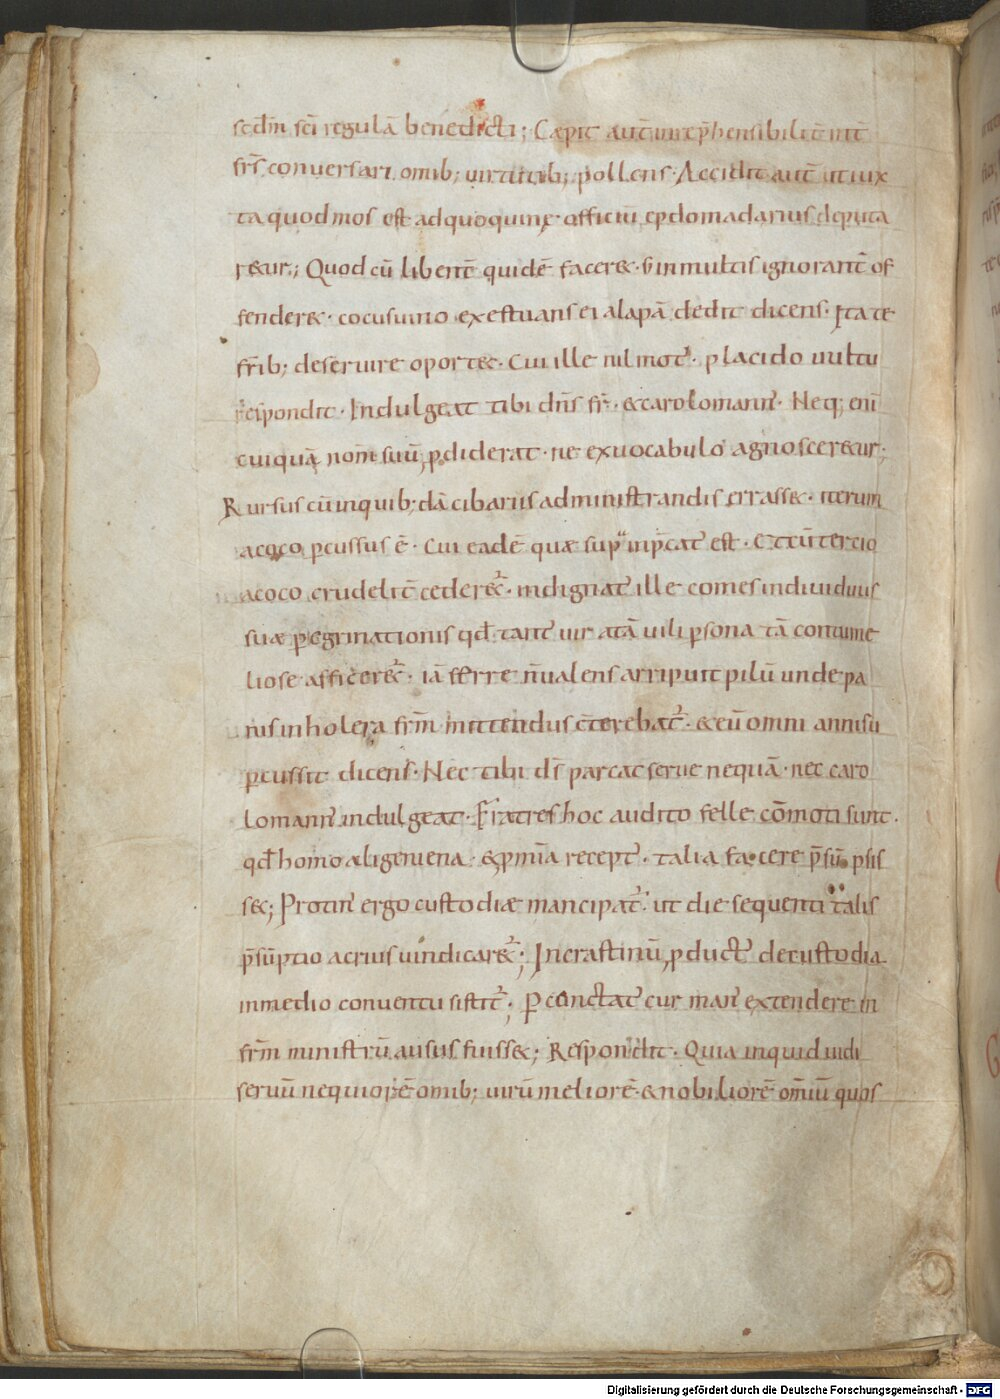 scdm̄ sc̄i regulā benedicti; Cæpit aut̄ inrep̄hensibilit̄ int̄
fr̄s conversari. omib; uirtutib; pollens · Accidit aut̄ ut iux
ta quod mos est ad quoquinę · officiū epdomadarius deputa
r&ur; Quod cū libent̄ quidē facer& · s; in multis ignorant̄ of
fender& · cocus uino exestuans ei alapā dedit dicens · Ita te
fr̄ib; deseruire oport&· Cui ille nil mot᾽ · placido uultu
respondit · Indulgeat tibi dn̄s fr̄ · & carolomann᾽· Neq; eni
cuiquā nom̄ suū ꝓdiderat · ne ex uocabulo agnoscer&ur;
Rursus cū in quib;dā cibariis administrandis errass& · iterum
a coco ꝑcussus ē · Cui eadē quæ supͣ inp̄cat᾽ est · Et cū tercio
a coco crudelit̄ ceder&᾽ · indignat᾽ ille comes indiuiduus
suæ ꝑegrinationis qđ tant᾽ uir a tā uili ꝑsona tā contume
liose afficer&᾽ · iā ferre n̄ ualens arripuit pilū unde pa
nis in holera fr̄m mittendus c̄terebat᾽ · & eū omni annisu
ꝑcussit dicens · Nec tibi d̄s parcat serue nequā · nec caro
lomann᾽ indulgeat · Fratres hoc audito felle cōmoti sunt ·
qđ homo aligeniena · & ꝑ mīa recept᾽ · talia facere p̄sūpsis
s&; Protin᾽ ergo custodiæ mancipat᾽ · ut die sequenti talis
p̄sūptio acrius uindicar&᾽; In crastinū ꝓduct᾽ de custodia
in medio conuentu sistit᾽; Ꝑcunctat᾽ cur man᾽ extendere in
fr̄m ministrū ausus fuiss&; Respondit · Quia inquid uidi
seruū nequiorē omib; uirū meliorē · & nobiliorē omiū quos
Digitalisierung gefördert durch die Deutsche Forschungsgemeinschaft - DFG